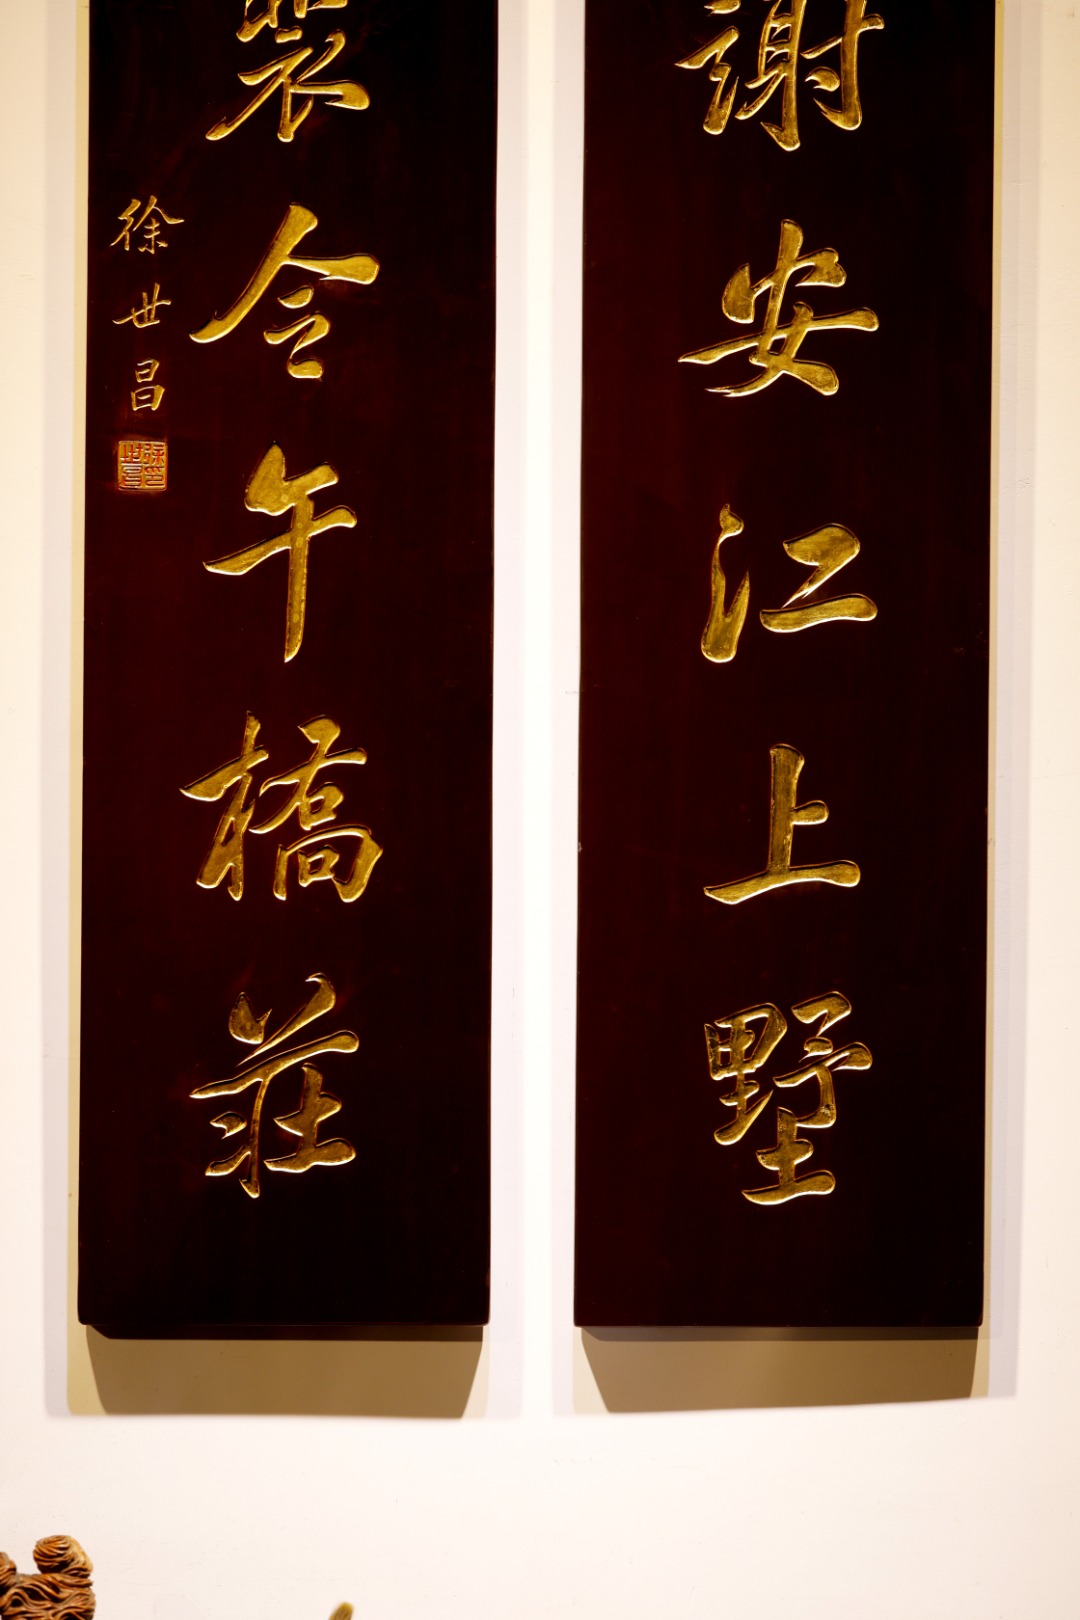 謝安江上墅
裴令午橋莊
徐世昌